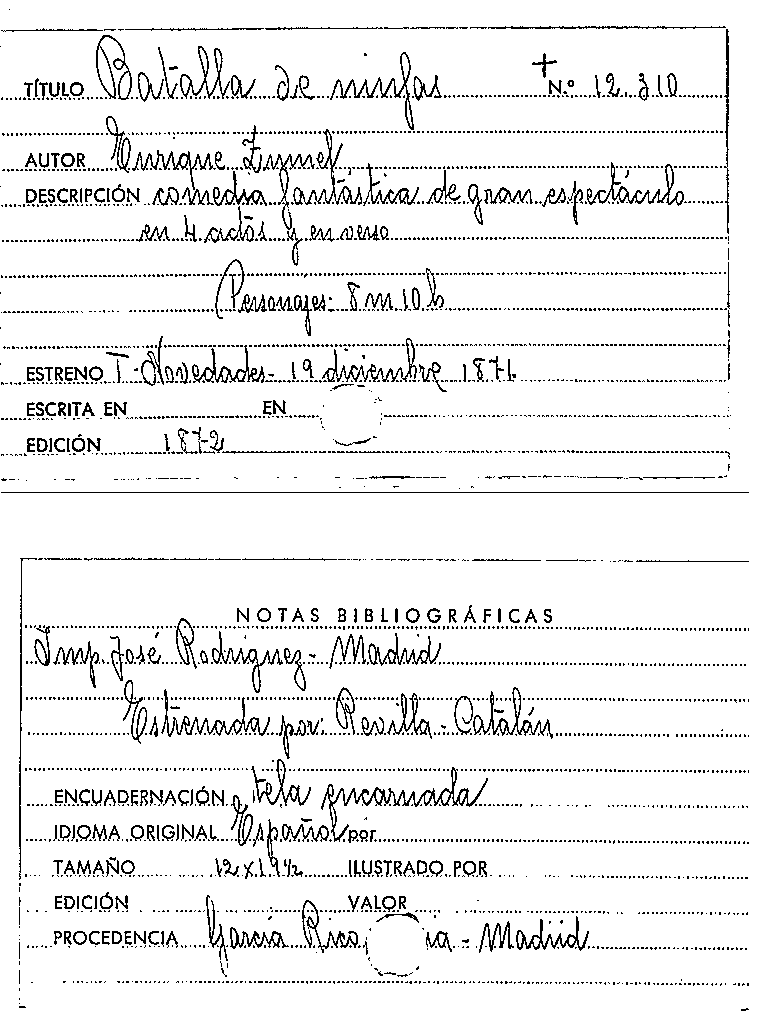 TÍTULO Batalla de ninfas + N.º 12.310
AUTOR Enrique Zumel
DESCRIPCIÓN comedia fantástica de gran espectáculo
en 4 actos y en verso
Personajes: 8 m. 10 h
ESTRENO T. Novedades - 19 diciembre 1871
ESCRITA EN EN
EDICIÓN 1872
NOTAS BIBLIOGRÁFICAS
Imp. José Rodriguez - Madrid
Estrenada por: Revilla - Catalán
ENCUADERNACIÓN tela encarnada
IDIOMA ORIGINAL Español por
TAMAÑO 12 x 19 1/2 ILUSTRADO POR
EDICIÓN VALOR
PROCEDENCIA García Rico, ia - Madrid